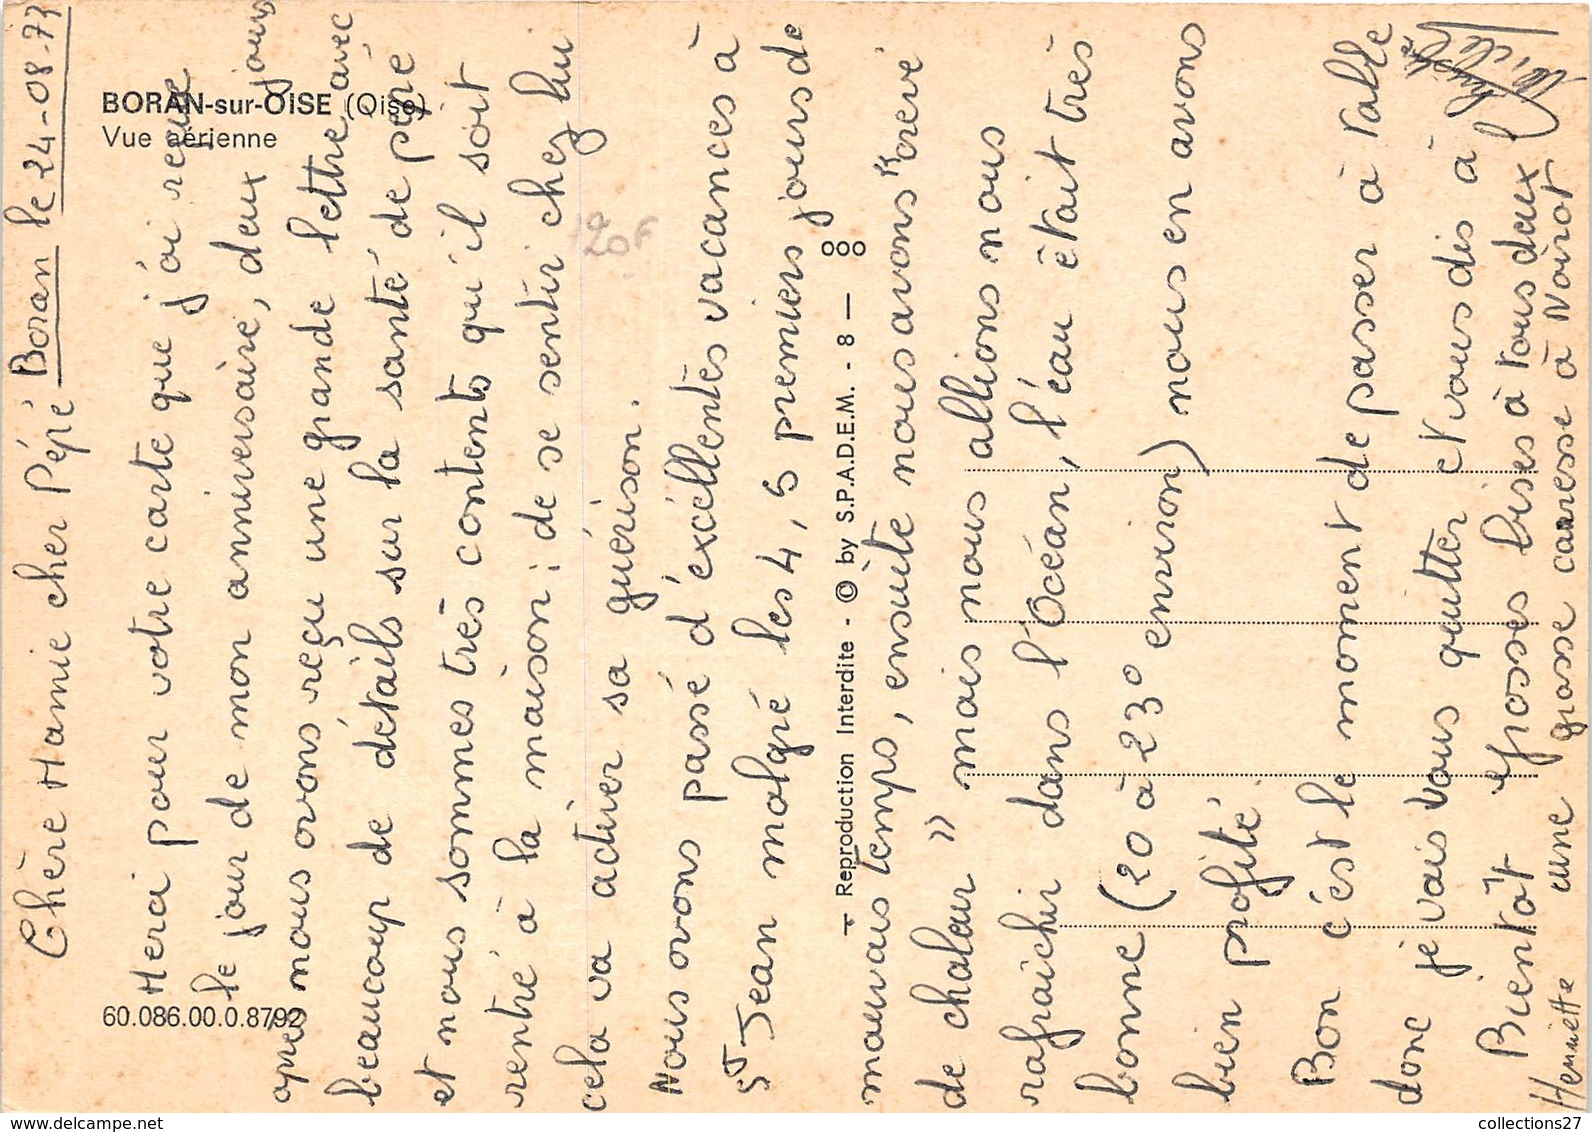 Boran le 24-08-73
Chère Mamie cher Pépé
Merci pour votre carte que j'ai reçue
le jour de mon anniversaire, deux jours
après nous avons reçu une grande lettre avec
beaucoup de détails sur la santé de pépé
et nous sommes très contents qu'il soit
rentré à la maison ; de se sentir chez lui
cela va activer sa guérison.
Nous avons passé d'excellentes vacances à
St Jean malgré les 4, 5 premiers jours de
mauvais temps, ensuite nous avons "crevé
de chaleur" mais nous allions nous
rafraichir dans l'Océan, l'eau était très
bonne (20 à 23° environ) nous en avons
bien profité.
Bon c'est le moment de passer à table
donc je vais vous quitter et vous dis à
Bientôt Grosses bises à tous deux
une grosse caresse à Noirot
Henriette
BORAN-sur-OISE (Oise)
Vue aérienne
60.086.00.0.8792
Reproduction Interdite - © by S.P.A.D.E.M. - 8 —
000
120F
collections27